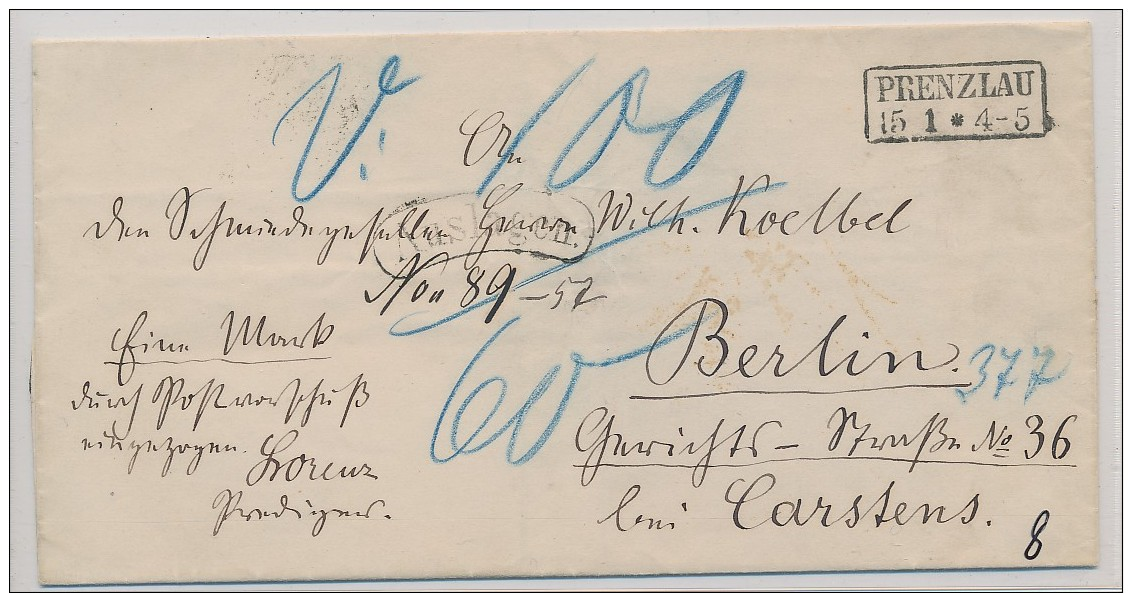 PRENZLAU
15 1 * 4-5
V. 100
An
den Schmiedegesellen Herrn Wilh. Koelbel
Auslagen.
No 89 - 57
60
Eine Mark
durch Postvorschuß
eingezogen.
Lorenz
Prediger.
Berlin.
377
Gerichts-Straße No 36
bei Carstens.
8